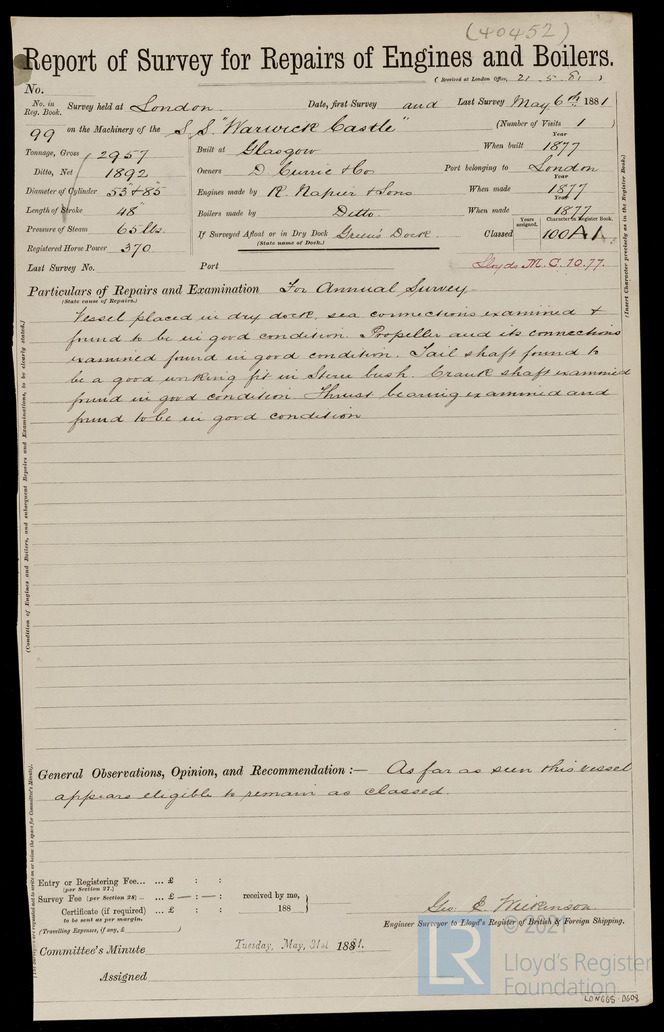 (40452)
Report of Survey for Repairs of Engines and Boilers.
(Received at London Office, 21.5.81)
No.
No. in Reg. Book. Survey held at London. Date, first Survey and Last Survey May 6th 1881
99 on the Machinery of the S.S. "Warwick Castle" (Number of Visits 1)
Tonnage, Gross 2957 Built at Glasgow When built Year 1877
Ditto, Net 1892 Owners D. Currie & Co Port belonging to London
Diameter of Cylinder 53" & 85" Engines made by R. Napier & Sons When made Year 1877
Length of Stroke 48" Boilers made by Ditto. When made Year 1877
Pressure of Steam 65 lbs. If Surveyed Afloat or in Dry Dock Green's Dock. Classed Years assigned. Character in Register Book. 100 A1
(State name of Dock.)
Registered Horse Power 370
Last Survey No. Port Lloyds M.C. 10.77.
Particulars of Repairs and Examination For Annual Survey
(State cause of Repairs.)
Vessel placed in dry dock, sea connections examined &
found to be in good condition. Propeller and its connections
examined found in good condition. Tail shaft found to
be a good working fit in Stern bush. Crank shaft examined
found in good condition. Thrust bearing examined and
found to be in good condition
General Observations, Opinion, and Recommendation :— As far as seen this vessel
appears eligible to remain as classed.
Entry or Registering Fee... ... £ : :
(per Section 27.)
Survey Fee (per Section 28) ... ... £ — : — :
received by me,
Certificate (if required) ... £ : : 188
to be sent as per margin.
(Travelling Expenses, if any, £ )
Geo. E. Wilkinson.
Engineer Surveyor to Lloyd's Register of British & Foreign Shipping.
Committee's Minute Tuesday, May, 31st 1881.
Assigned
(Insert Character precisely as in the Register Book.)
(Condition of Engines and Boilers, and subsequent Repairs and Examinations, to be clearly stated.)
LR
© 2021
Lloyd's Register
Foundation
LON665-0603